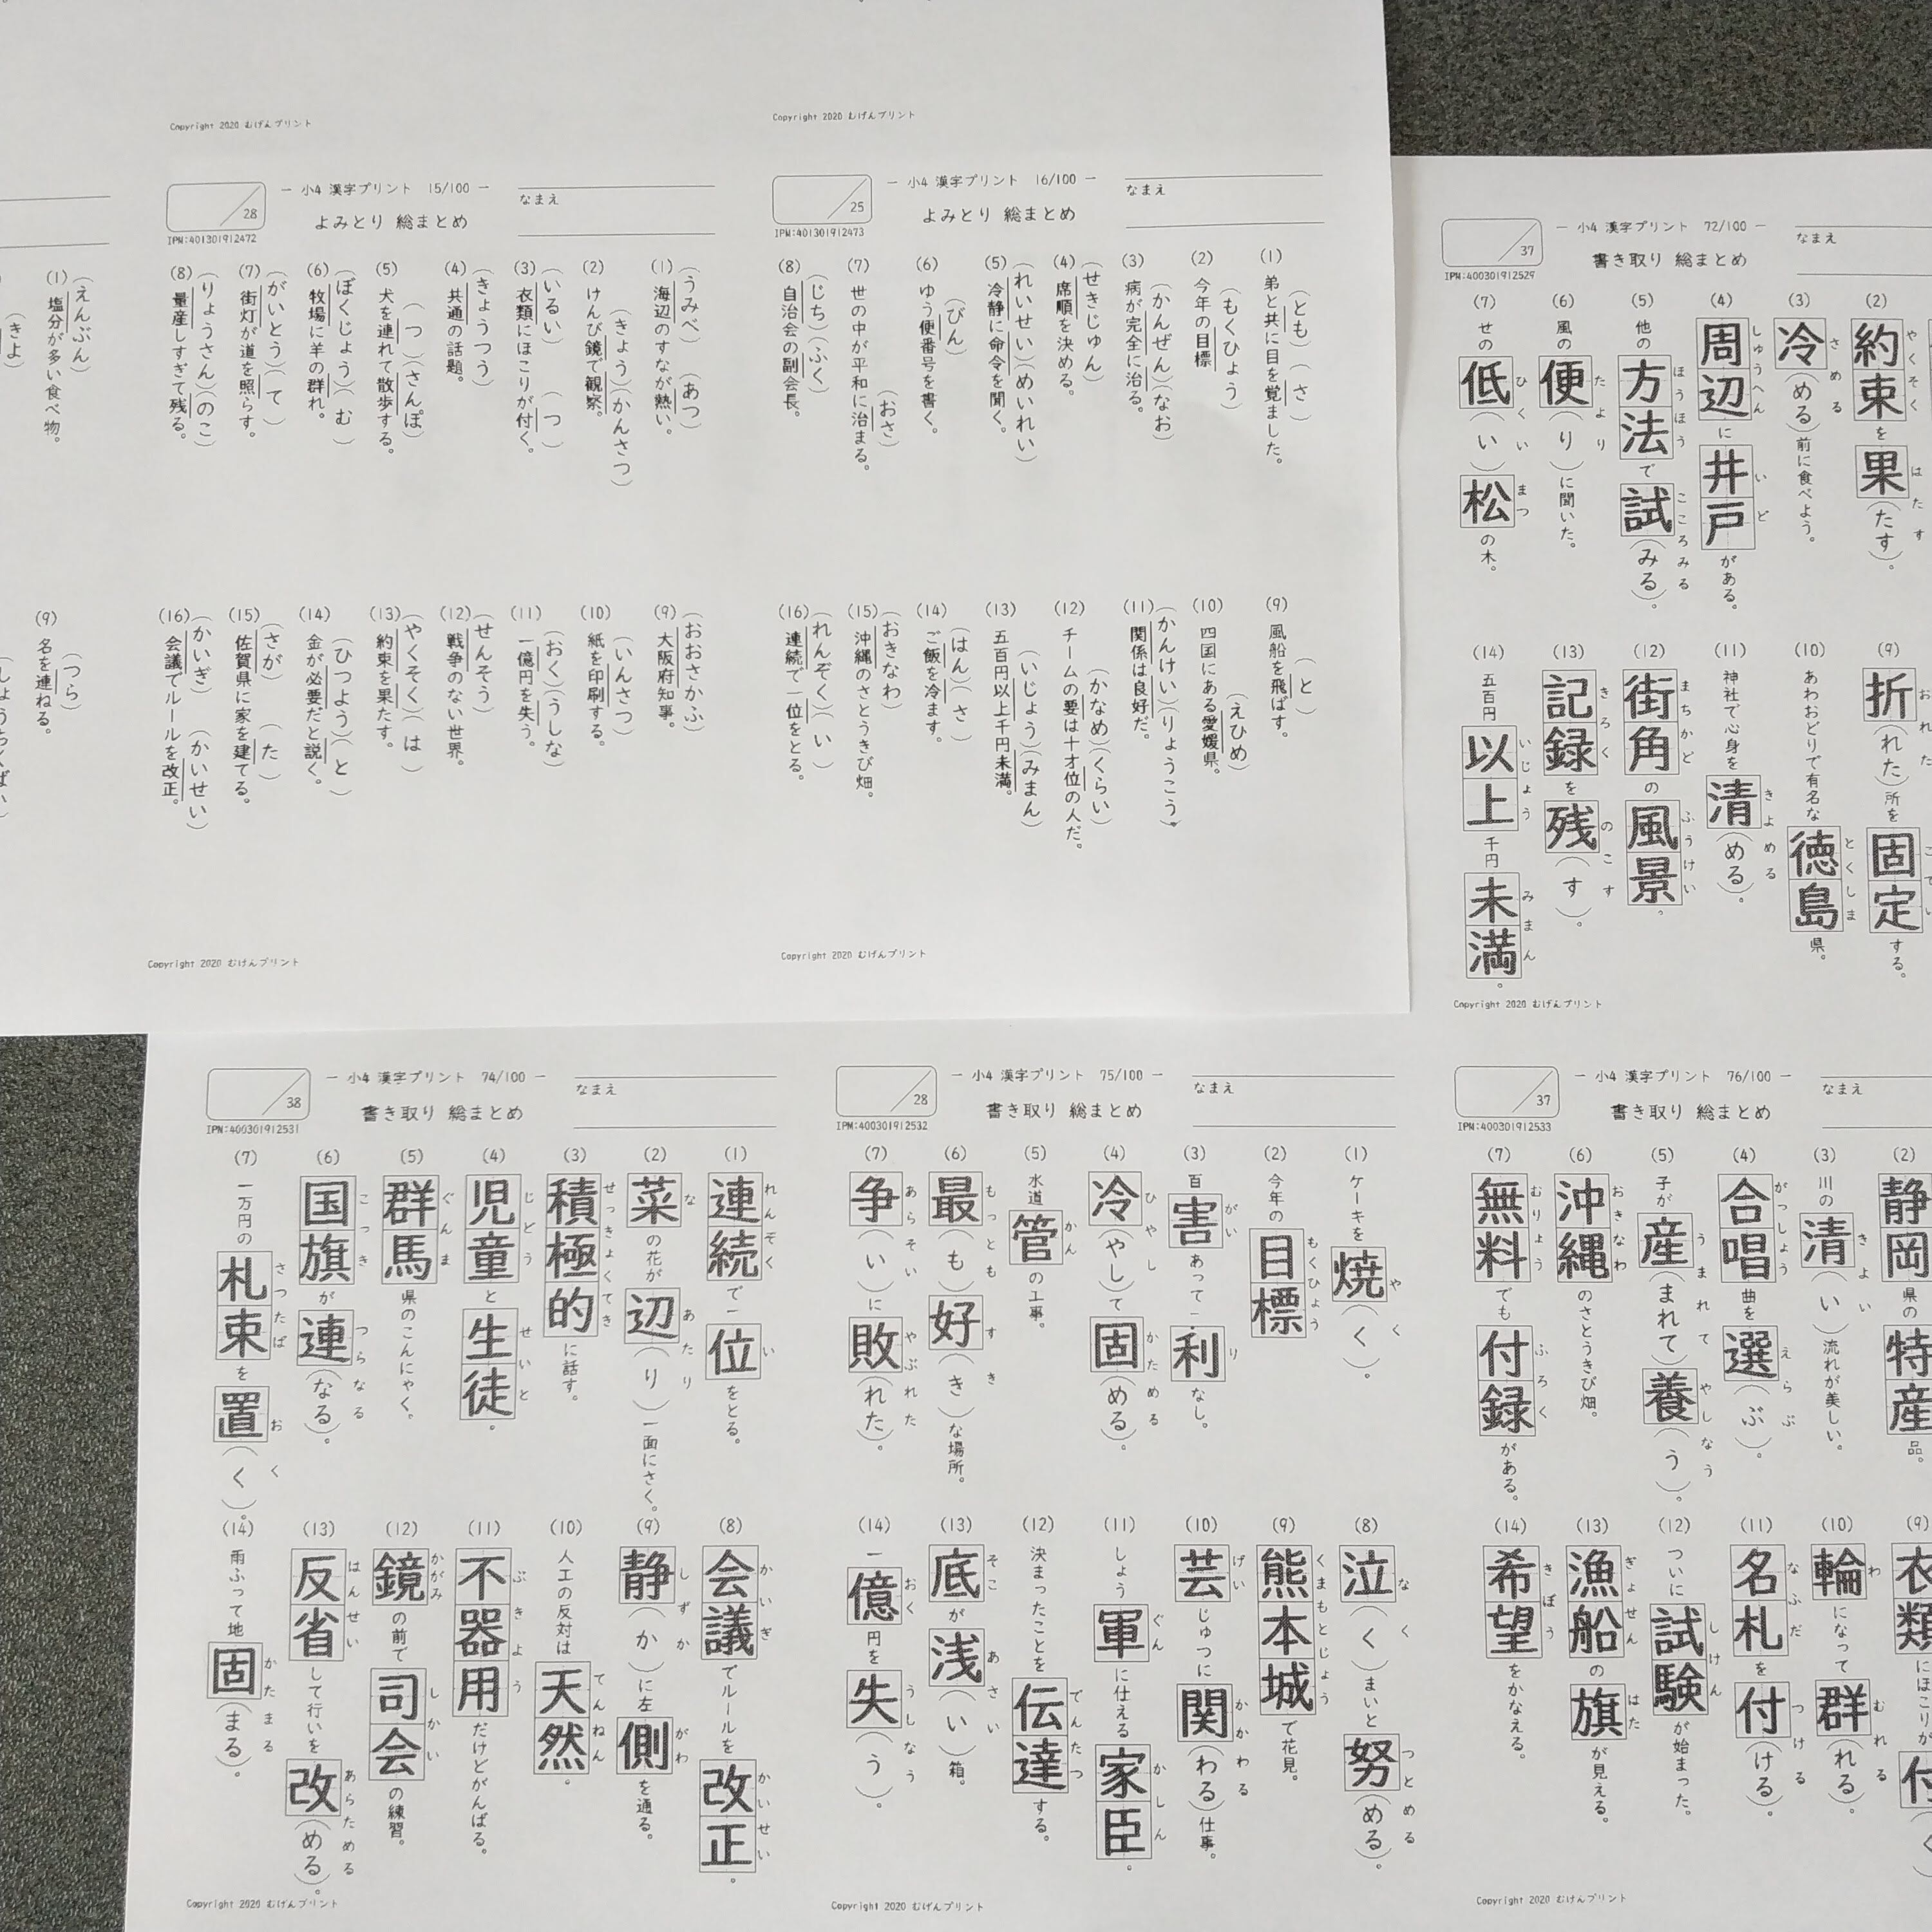 Copyright 2020 むげんプリント
Copyright 2020 むげんプリント
(1)
(えんぶん)
塩分が多い食べ物。
(きよ)
(9)
(つら)
名を連ねる。
28
IPN:401301912472
― 小4 漢字プリント 15/100 ―
よみとり 総まとめ
なまえ
(1)
(うみべ)(あつ)
海辺のすなが熱い。
(2)
(きょう)(かんさつ)
けんび鏡で観察。
(3)
(いるい)(つ)
衣類にほこりが付く。
(4)
(きょうつう)
共通の話題。
(5)
(つ)(さんぽ)
犬を連れて散歩する。
(6)
(ぼくじょう)(む)
牧場に羊の群れ。
(7)
(がいとう)(て)
街灯が道を照らす。
(8)
(りょうさん)(のこ)
量産しすぎて残る。
(9)
(おおさかふ)
大阪府知事。
(10)
(いんさつ)
紙を印刷する。
(11)
(おく)(うしな)
一億円を失う。
(12)
(せんそう)
戦争のない世界。
(13)
(やくそく)(は)
約束を果たす。
(14)
(ひつよう)(と)
金が必要だと説く。
(15)
(さが)(た)
佐賀県に家を建てる。
(16)
(かいぎ)(かいせい)
会議でルールを改正。
Copyright 2020 むげんプリント
25
IPN:401301912473
― 小4 漢字プリント 16/100 ―
よみとり 総まとめ
なまえ
(1)
(とも)(さ)
弟と共に目を覚ました。
(2)
(もくひょう)
今年の目標
(3)
(かんぜん)(なお)
病が完全に治る。
(4)
(せきじゅん)
席順を決める。
(5)
(れいせい)(めいれい)
冷静に命令を聞く。
(6)
(びん)
ゆう便番号を書く。
(7)
(おさ)
世の中が平和に治まる。
(8)
(じち)(ふく)
自治会の副会長。
(9)
(と)
風船を飛ばす。
(10)
(えひめ)
四国にある愛媛県。
(11)
(かんけい)(りょうこう)
関係は良好だ。
(12)
(かなめ)(くらい)
チームの要は十才位の人だ。
(13)
(いじょう)(みまん)
五百円以上千円未満。
(14)
(はん)(さ)
ご飯を冷ます。
(15)
(おきなわ)
沖縄のさとうきび畑。
(16)
(れんぞく)(い)
連続で一位をとる。
Copyright 2020 むげんプリント
37
IPN:400301912529
― 小4 漢字プリント 72/100 ―
書き取り 総まとめ
なまえ
(2)
約束を果(たす)。
やくそく はたす
(3)
冷(める)前に食べよう。
さめる
(4)
周辺に井戸がある。
しゅうへん いど
(5)
他の方法で試(みる)。
ほうほう こころみる
(6)
風の便(り)に聞いた。
たより
(7)
せの低(い)松の木。
ひくい まつ
(9)
折(れた)所を固定する。
おれた
(10)
あわおどりで有名な徳島県。
とくしま
(11)
神社で心身を清(める)。
きよめる
(12)
街角の風景。
まちかど ふうけい
(13)
記録を残(す)。
きろく のこす
(14)
五百円以上千円未満。
いじょう みまん
Copyright 2020 むげんプリント
38
IPN:400301912531
― 小4 漢字プリント 74/100 ―
書き取り 総まとめ
なまえ
(1)
連続で一位をとる。
れんぞく い
(2)
菜の花が辺(り)一面にさく。
な あたり
(3)
積極的に話す。
せっきょくてき
(4)
児童と生徒。
じどう せいと
(5)
群馬県のこんにゃく。
ぐんま
(6)
国旗が連(なる)。
こっき つらなる
(7)
一万円の札束を置(く)。
さつたば おく
(8)
会議でルールを改正。
かいぎ かいせい
(9)
静(か)に左側を通る。
しずか がわ
(10)
人工の反対は天然。
てんねん
(11)
不器用だけどがんばる。
ぶきよう
(12)
鏡の前で司会の練習。
かがみ しかい
(13)
反省して行いを改(める)。
はんせい あらためる
(14)
雨ふって地固(まる)。
かたまる
Copyright 2020 むげんプリント
28
IPN:400301912532
― 小4 漢字プリント 75/100 ―
書き取り 総まとめ
なまえ
(1)
ケーキを焼(く)。
やく
(2)
今年の目標
もくひょう
(3)
百害あって一利なし。
がい り
(4)
冷(やし)て固(める)。
ひやし かためる
(5)
水道管の工事。
かん
(6)
最(も)好(き)な場所。
もっとも すき
(7)
争(い)に敗(れた)。
あらそい やぶれた
(8)
泣(く)まいと努(める)。
なく つとめる
(9)
熊本城で花見。
くまもとじょう
(10)
芸じゅつに関(わる)仕事。
げい かかわる
(11)
しょう軍に仕える家臣。
ぐん かしん
(12)
決まったことを伝達する。
でんたつ
(13)
底が浅(い)箱。
そこ あさい
(14)
一億円を失(う)。
おく うしなう
Copyright 2020 むげんプリント
37
IPN:400301912533
― 小4 漢字プリント 76/100 ―
書き取り 総まとめ
なまえ
(2)
静岡県の特産品。
(3)
川の清(い)流れが美しい。
きよい
(4)
合唱曲を選(ぶ)。
がっしょう えらぶ
(5)
子が産(まれて)養(う)。
うまれて やしなう
(6)
沖縄のさとうきび畑。
おきなわ
(7)
無料でも付録がある。
むりょう ふろく
(9)
衣類にほこりが付(く
(10)
輪になって群(れる)。
わ むれる
(11)
名札を付(ける)。
なふだ つける
(12)
ついに試験が始まった。
しけん
(13)
漁船の旗が見える。
ぎょせん はた
(14)
希望をかなえる。
きぼう
Copyright 2020 むげんプリント